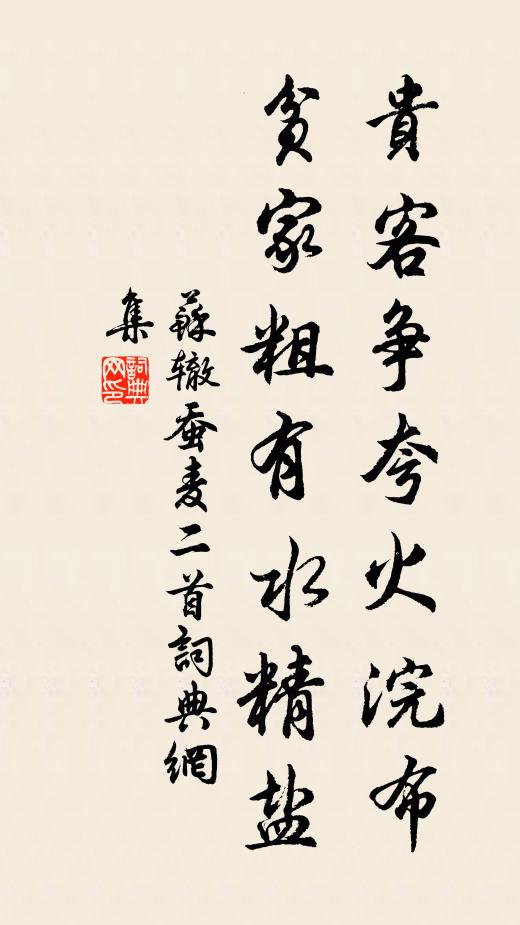 貴客争夸火浣布
貧家粗有水精盐
蘇辙蚕麦二首詞典網
集
詞典
网印